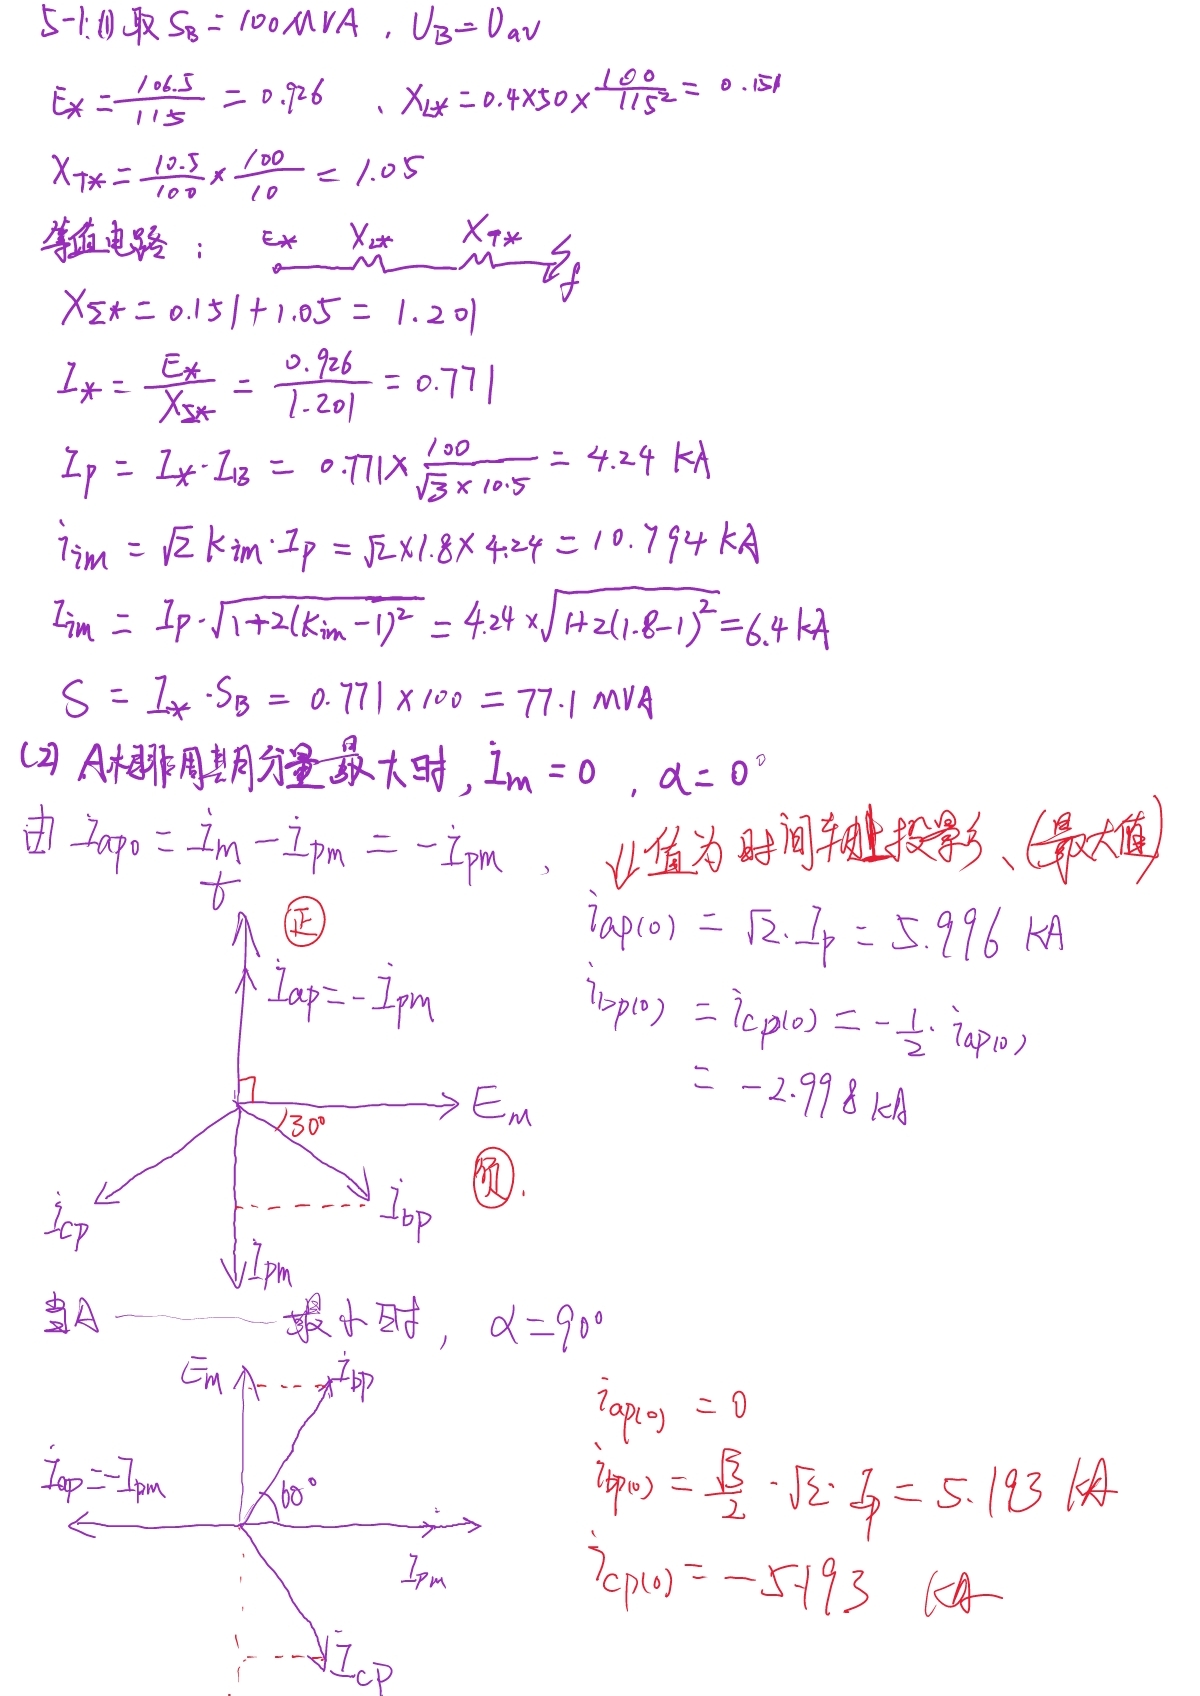 5-1.(1)取 S_B = 100MVA , U_B = U_av
E* = 106.5/115 = 0.926 、 X_L* = 0.4×50×100/115² = 0.151
X_T* = 10.5/100 × 100/10 = 1.05
等值电路 : E* X_L* X_T* f
X_Σ* = 0.151+1.05 = 1.201
I* = E*/X_Σ* = 0.926/1.201 = 0.771
I_p = I*·I_B = 0.771×100/(√3×10.5) = 4.24 kA
i_im = √2 k_im·I_p = √2×1.8×4.24 = 10.794 kA
I_im = I_p·√(1+2(k_im-1)²) = 4.24×√(1+2(1.8-1)²) = 6.4 kA
S = I*·S_B = 0.771×100 = 77.1 MVA
(2) A相非周期分量最大时, İ_m = 0 , α = 0°
由 İ_ap0 = İ_m - İ_pm = -İ_pm 、 ↓值为时间轴上投影、(最大值)
t 正
İ_ap = -İ_pm
i_ap(0) = √2·I_p = 5.996 kA
i_bp(0) = i_cp(0) = -1/2·i_ap(0)
= -2.998 kA
E_m
30°
负.
İ_cp İ_bp
İ_pm
当A —— 最小时, α = 90°
E_m İ_bp
i_ap(0) = 0
İ_ap = -İ_pm
60°
i_bp(0) = √3/2·√2·I_p = 5.193 kA
İ_pm
i_cp(0) = -5.193 kA
İ_cp